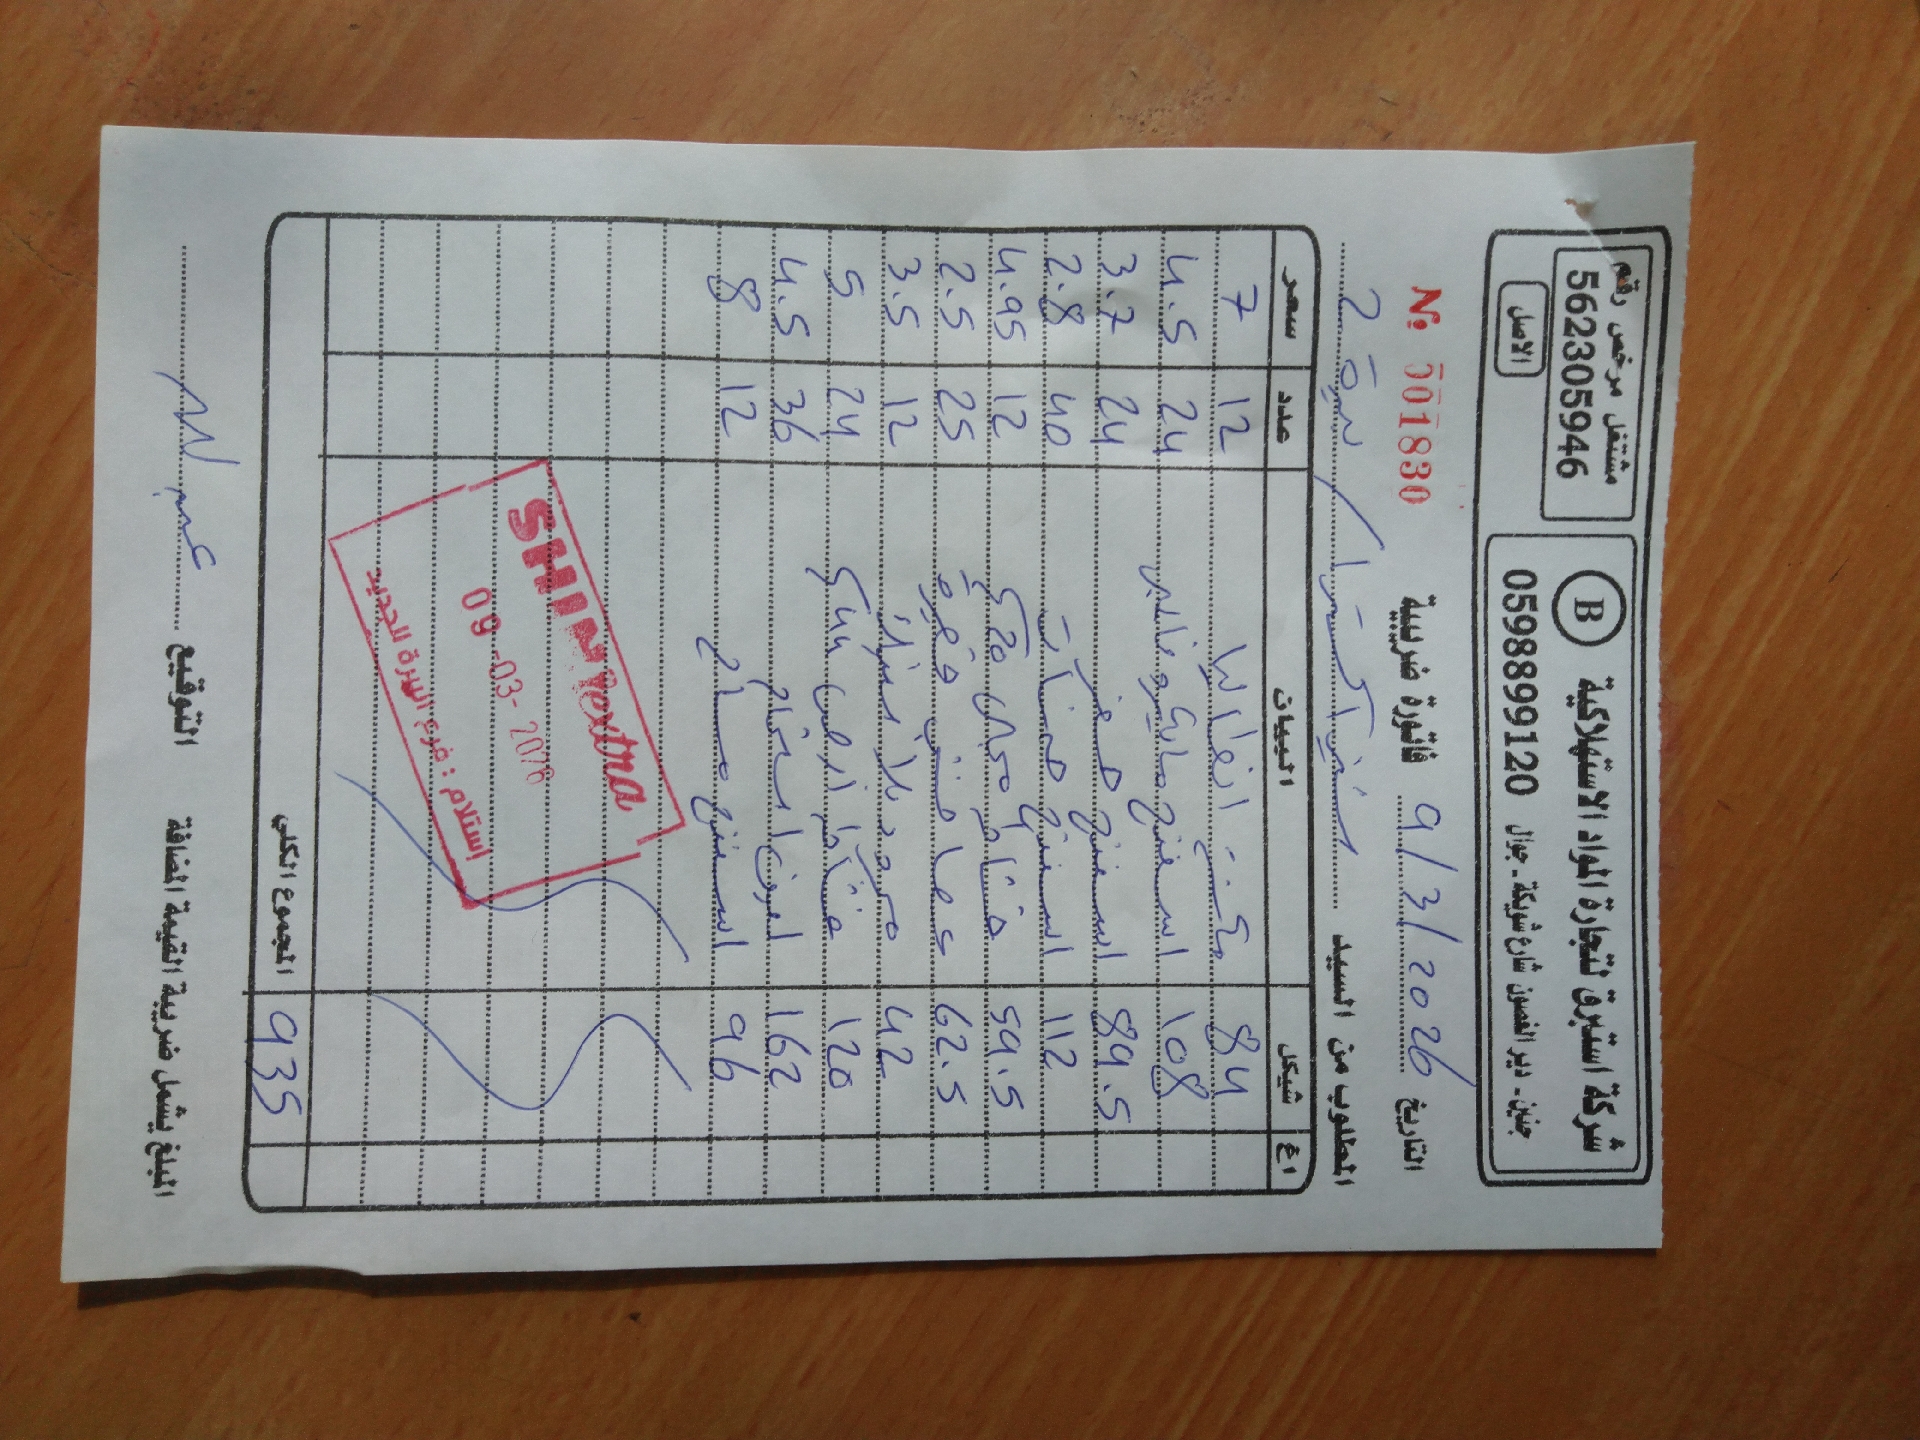 شركة استبرق لتجارة المواد الاستهلاكية
جنين - دير الغصون شارع شويكة - جوال 0598899120
B
مشتغل مرخص رقم
562305946
الاصل
التاريخ 9/3/2026 فاتورة ضريبية № 001830
المطلوب من السيد شني اكسترا / بيرة 2
اغ شيكل البيات عدد سعر
84 مكنسة 12 7
108 اسفنج مايكروفايبر 24 4.5
89.5 اسفنج 24 3.7
112 اسفنج 40 2.8
59.5 مجلى 12 4.95
62.5 عصا 25 2.5
42 مجرود بلاط 12 3.5
120 24 5
162 36 4.5
96 اسفنج 12 8
SHINI extra
09 -03- 2026
إستلام : فرع البيرة الجديد
المجموع الكلي 935
المبلغ يشمل ضريبة القيمة المضافة التوقيع